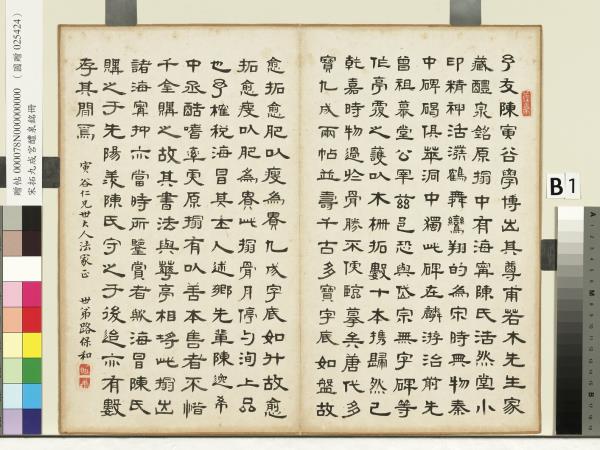 予友陳寅谷學博出其尊甫若木先生家
藏醴泉銘原搨中有海寧陳氏活然堂小
印精神活潑鶴舞鸞翔的為宋時興物秦
中碑碣俱萃洞中獨此碑在麟游治前先
曾祖慕堂公宰茲邑恐與岱宗無字碑等
作亭覆之護以木柵拓數十本攜歸然已
乾嘉時物過於骨勝不便臨摹矣唐代多
寶九成兩帖並壽千古多寶字底如盤故
愈拓愈肥以瘦為貴九成字底如升故愈
拓愈瘦以肥為貴此搨骨月停勻洵上品
也予榷稅海昌其土人述鄉先輩陳希
中丞酷嗜率更原搨有以善本售者不惜
千金購之故其書法與華亭相埒此搨出
諸海寧抑亦當時所鑒賞者歟海昌陳氏
購之于先陽羨陳氏守之于後迨亦有數
存其間焉
寅谷仁兄世大人法家正
世弟路保和
贈帖 000078N000000000 （國贈 025424）
宋拓九成宮醴泉銘冊
B 1